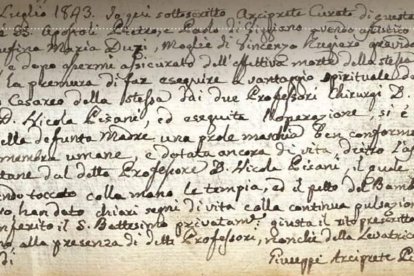 Luglio 1843. Io quì sottoscritto Arciprete Curato di questa
SS. Apostoli Pietro, e Paolo di Gi avendo assistito
Maria Duzi, Moglie di Vincenzo gravida
dopo essermi assicurato dell'effettiva morte della stessa
la premura di far eseguire a vantaggio spirituale
Cesareo della stessa dai due Professori Chirurgi D.
D. Nicola Pisani, ed eseguita l'operazione si è
della defunta Madre una prole maschile ben conforma
membra umane e dotata ancora di vita, dietro l'
dal detto Professore D. Nicola Pisani, il quale
endo toccato colla mano le tempia, ed il petto del Bamb
han dato chiari segni di vita colla continua pulsazion
nferito il S. Battesimo privatam: giusta il rito prescritto
alla presenza di detti Professori, nonchè della Levatrice
di
Giuseppe Arciprete